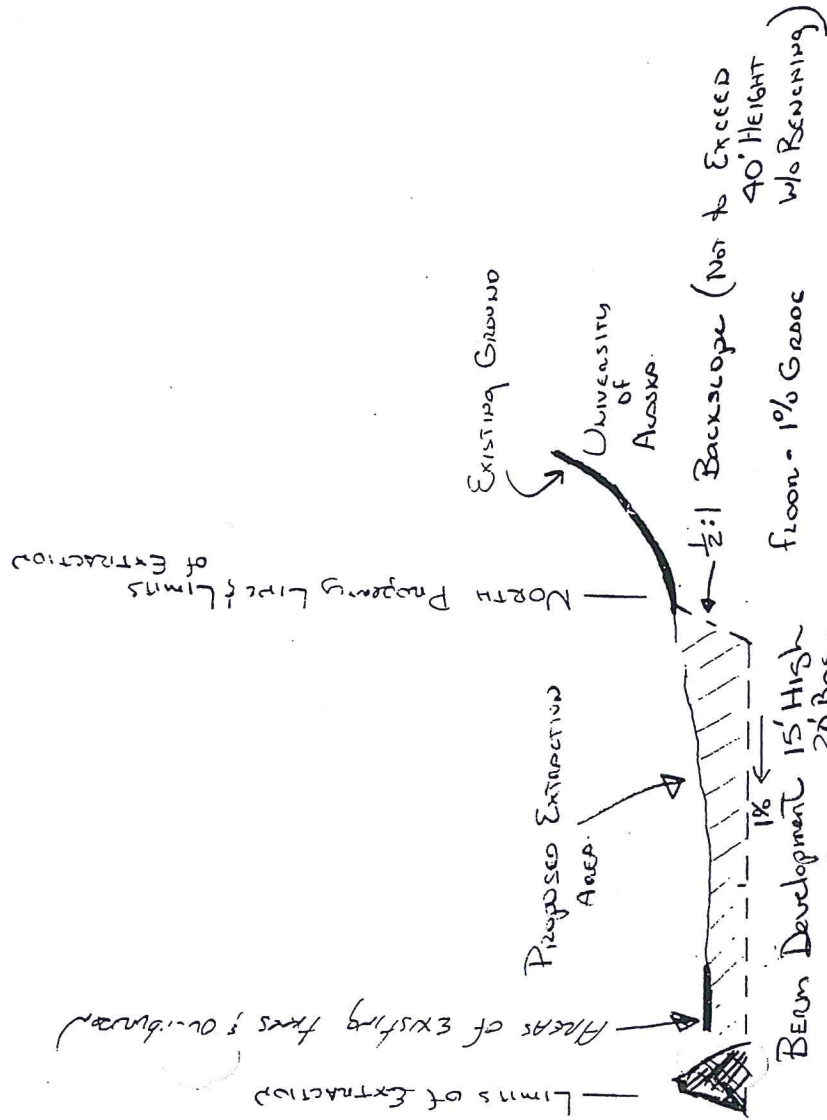 Limits of Extraction
Areas of Existing Trees & Overburden
North Property Line & Limits
of Extraction
Proposed Extraction
Area.
Existing Ground
University
of
Alaska.
1/2:1 Backslope (Not to Exceed
40' Height
w/o Benching)
Floor - 1% Grade
1%
Berm Development 15' High